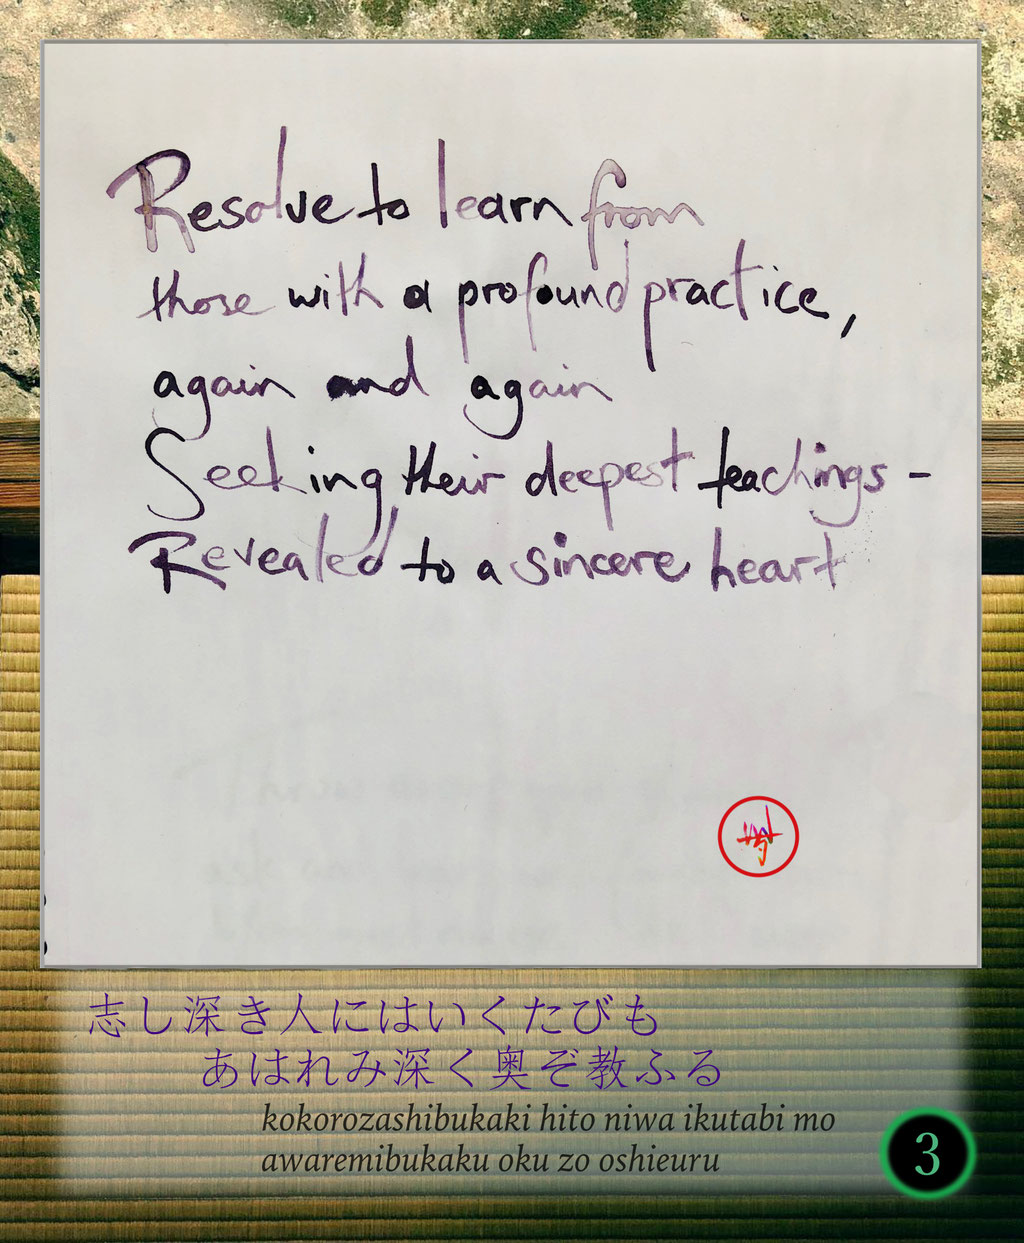 Resolve to learn from
those with a profound practice,
again and again
Seeking their deepest teachings -
Revealed to a sincere heart
志し深き人にはいくたびも
あはれみ深く奥ぞ教ふる
kokorozashibukaki hito niwa ikutabi mo
awaremibukaku oku zo oshieuru
3